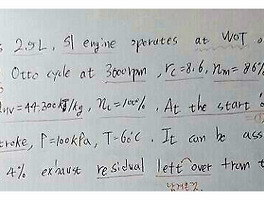 2.5L, SI engine operates at WOT o
Otto cycle at 3000rpm, rc=8.6, ηm=86%
HV=44.300kJ/kg, ηc=100%. At the start o
stroke, P=100kPa, T=60°C. It can be ass
4% exhaust residual left over from t